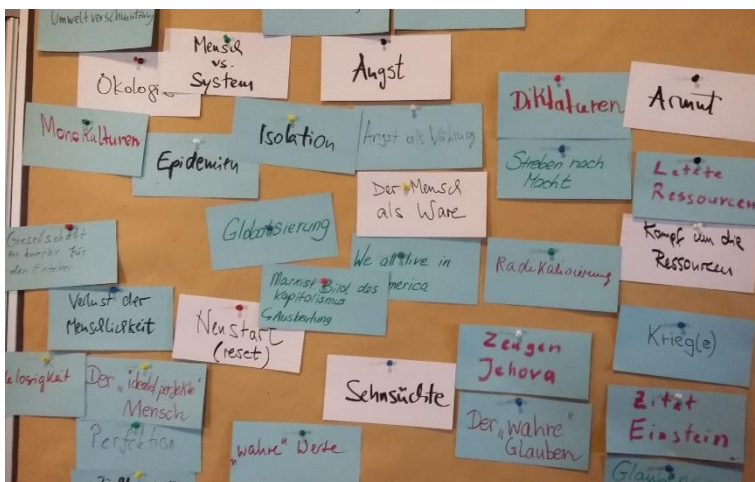 Umweltverschmutzung
Mensch
vs.
System
Ökologie
Angst
Diktaturen
Armut
Monokulturen
Epidemien
Isolation
Angst als Währung
Streben nach
Macht
Letzte
Ressourcen
Der Mensch
als Ware
Globalisierung
Gesellschaft
zu komplex für
den Einzelnen
We all live in
America
Radikalisierung
Kampf um die
Ressourcen
Marxist Bild des
Kapitalismus
Ausbeutung
Verlust der
Menschlichkeit
Neustart
(reset)
Krieg(e)
Zeugen
Jehova
losigkeit
Der "ideal perfekte"
Mensch
Sehnsüchte
Zitat
Einstein
Perfektion
"wahre" Werte
Der "wahre"
Glauben